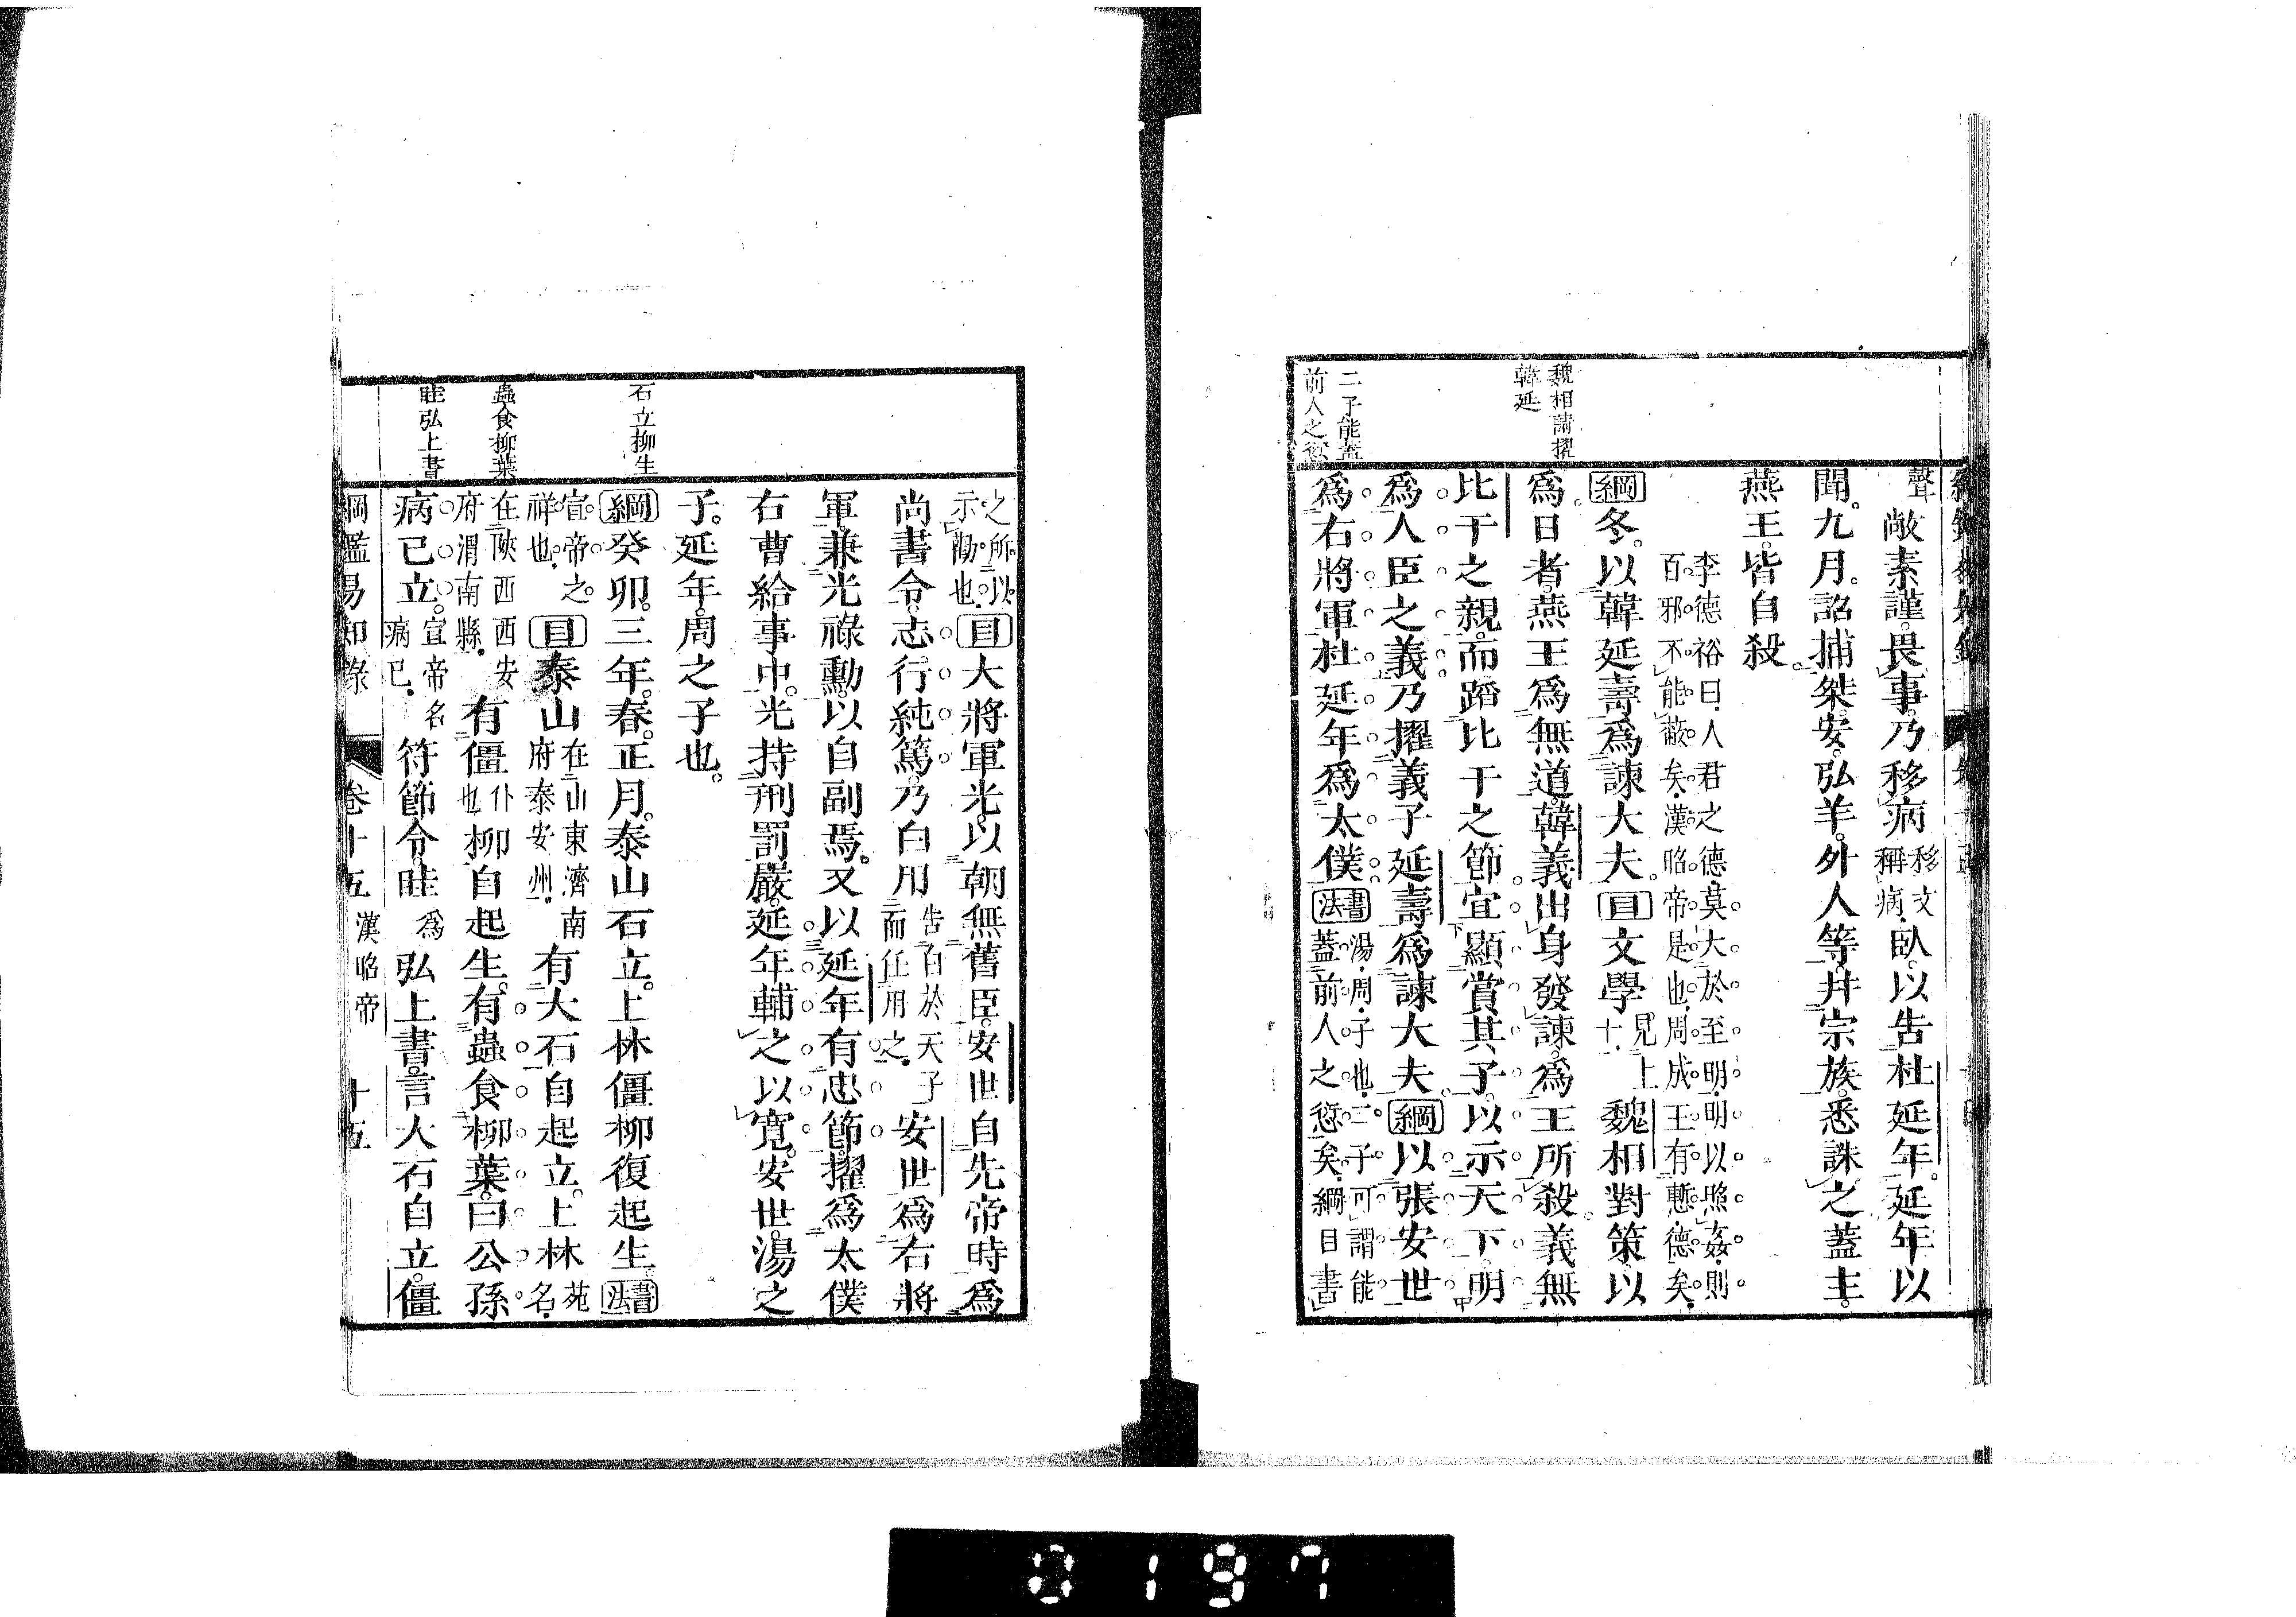 魏相請擢
韓延
二子能蓋
前人之愆
聲敞素謹畏事乃移病移文稱病臥以告杜延年延年以
聞九月詔捕桀安弘羊外人等并宗族悉誅之蓋主
燕王皆自殺
李德裕曰人君之德莫大於至明明以照姦則
百邪不能蔽矣漢昭帝是也周成王有慙德矣
綱冬以韓延壽爲諫大夫目文學見上十魏相對策以
爲日者燕王爲無道韓義出身發諫爲王所殺義無
比干之親而蹈比干之節宜顯賞其子以示天下明
爲人臣之義乃擢義子延壽爲諫大夫綱以張安世
爲右將軍杜延年爲太僕書法湯周子也二子可謂能蓋前人之愆矣綱目書
石立柳生
蟲食柳葉
眭弘上書
之所以示勸也目大將軍光以朝無舊臣安世自先帝時爲
尚書令志行純篤乃白用告白於天子而任用之安世爲右將
軍兼光祿勳以自副焉又以延年有忠節擢爲太僕
右曹給事中光持刑罰嚴延年輔之以寬安世湯之
子延年周之子也
綱癸卯三年春正月泰山石立上林僵柳復起生書法
宣帝之祥也目泰山在山東濟南府泰安州有大石自起立上林苑名
在陝西西安府渭南縣有僵仆也柳自起生有蟲食柳葉曰公孫
病已立宣帝名病已符節令眭爲弘上書言大石自立僵
綱鑑易知錄 卷十五 漢昭帝 十五
0197